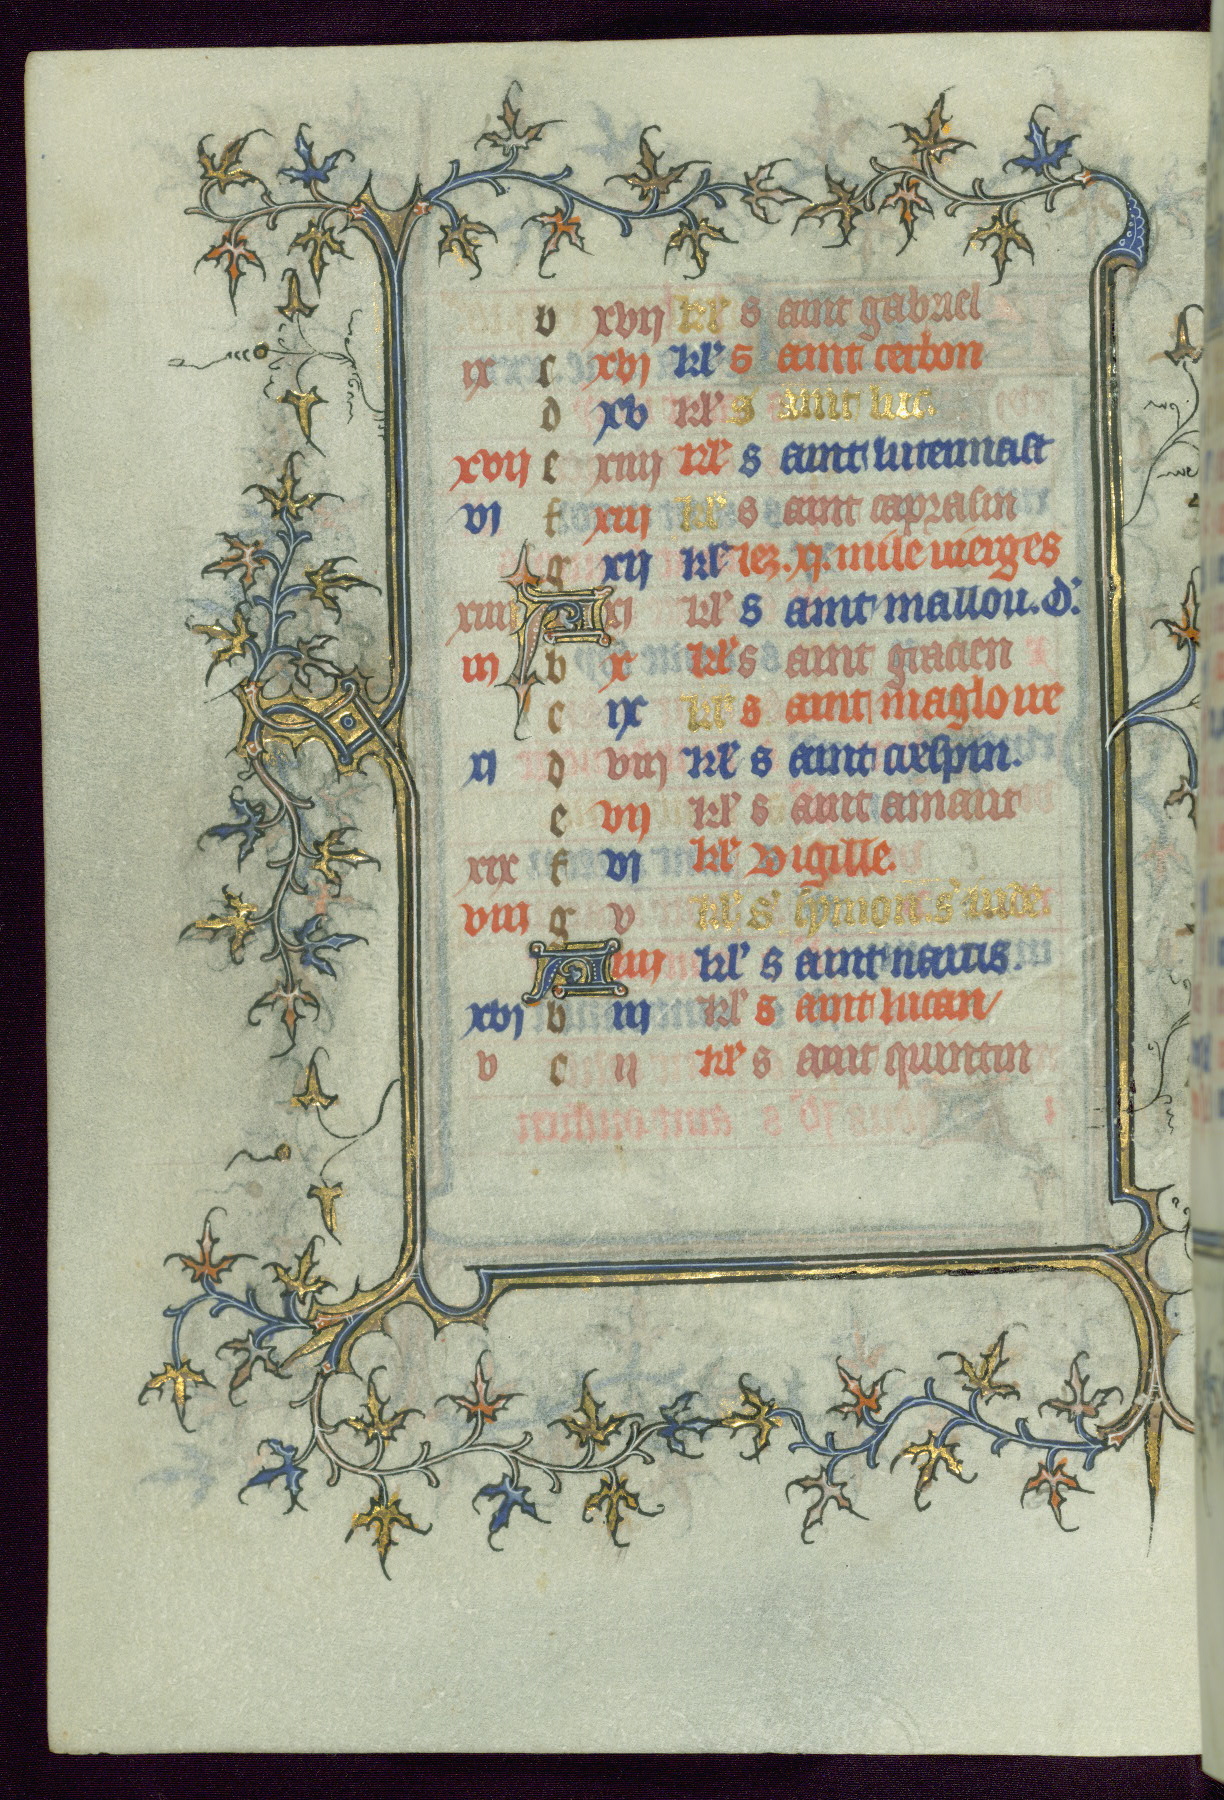 b xvij kl' s aint gabriel
ix c xvj kl' s aint cerbon
d xv kl' s aint luc.
xvij e xiiij kl' s aint lutennast
vj f xiij kl' s aint caprasin
g xij kl' lez .xj. mile vierges
xiiij A xj kl' s aint mallou. d'.
iij b x kl' s aint gracien
c ix kl' s aint magloire
xj d viij kl' s aint crespin.
e vij kl' s aint amant
xix f vj kl' vigille.
viij g v kl' s' symon. s' iude
A iiij kl' s aint nauis.
xvj b iij kl' s aint lucan
v c ij kl' s aint quintin